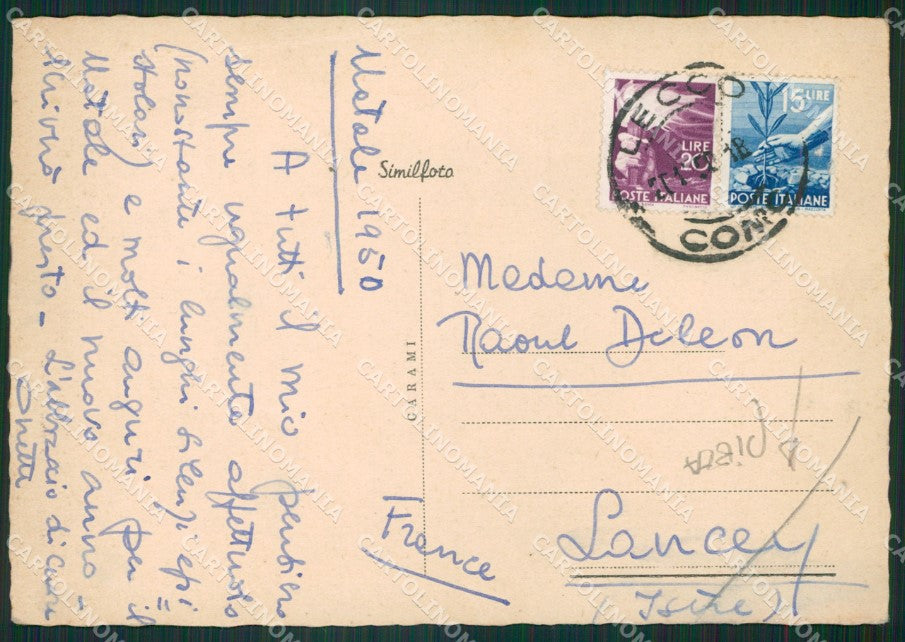 Natale 1950
A tutti il mio pensiero
sempre ugualmente affettuoso
(nonostante i lunghi silenzi epi=
stolari) e molti auguri per il
Natale ed il nuovo anno -
Scriverò presto - L'abbraccio di cuore
Similfoto
CARAMI
LECCO
COMO
LIRE
20
POSTE ITALIANE
15 LIRE
POSTE ITALIANE
Madame
Raoul Deleon
Lancey
(Isère)
France
CARTOLINOMANIA